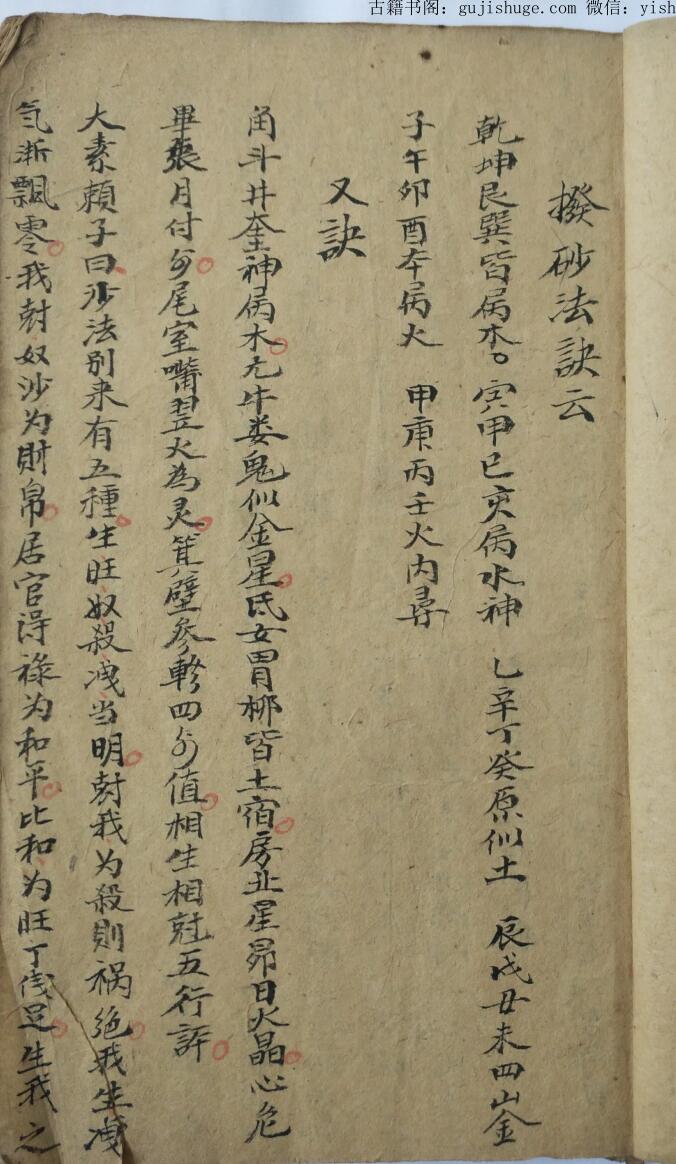 古籍书阁：gujishuge.com 微信：yish
撥砂法訣云
乾坤艮巽皆属木 寅甲巳亥属水神 乙辛丁癸原似土 辰戌丑未四山金
子午卯酉本属火 甲庚丙壬火内尋
又訣
角斗井奎神属木 亢牛娄鬼似金星 氐女胃柳皆土宿 房虛星昴日火晶 心危
畢張月付分 尾室嘴翌火為灵 箕壁参軫四分值 相生相尅五行評
大素頼子曰 沙法别来有五種 生旺奴殺洩当明 尅我为殺則禍絶 我生洩
氣漸飄零 我尅奴沙为財帛 居官得禄为和平 比和为旺丁俴足 生我之